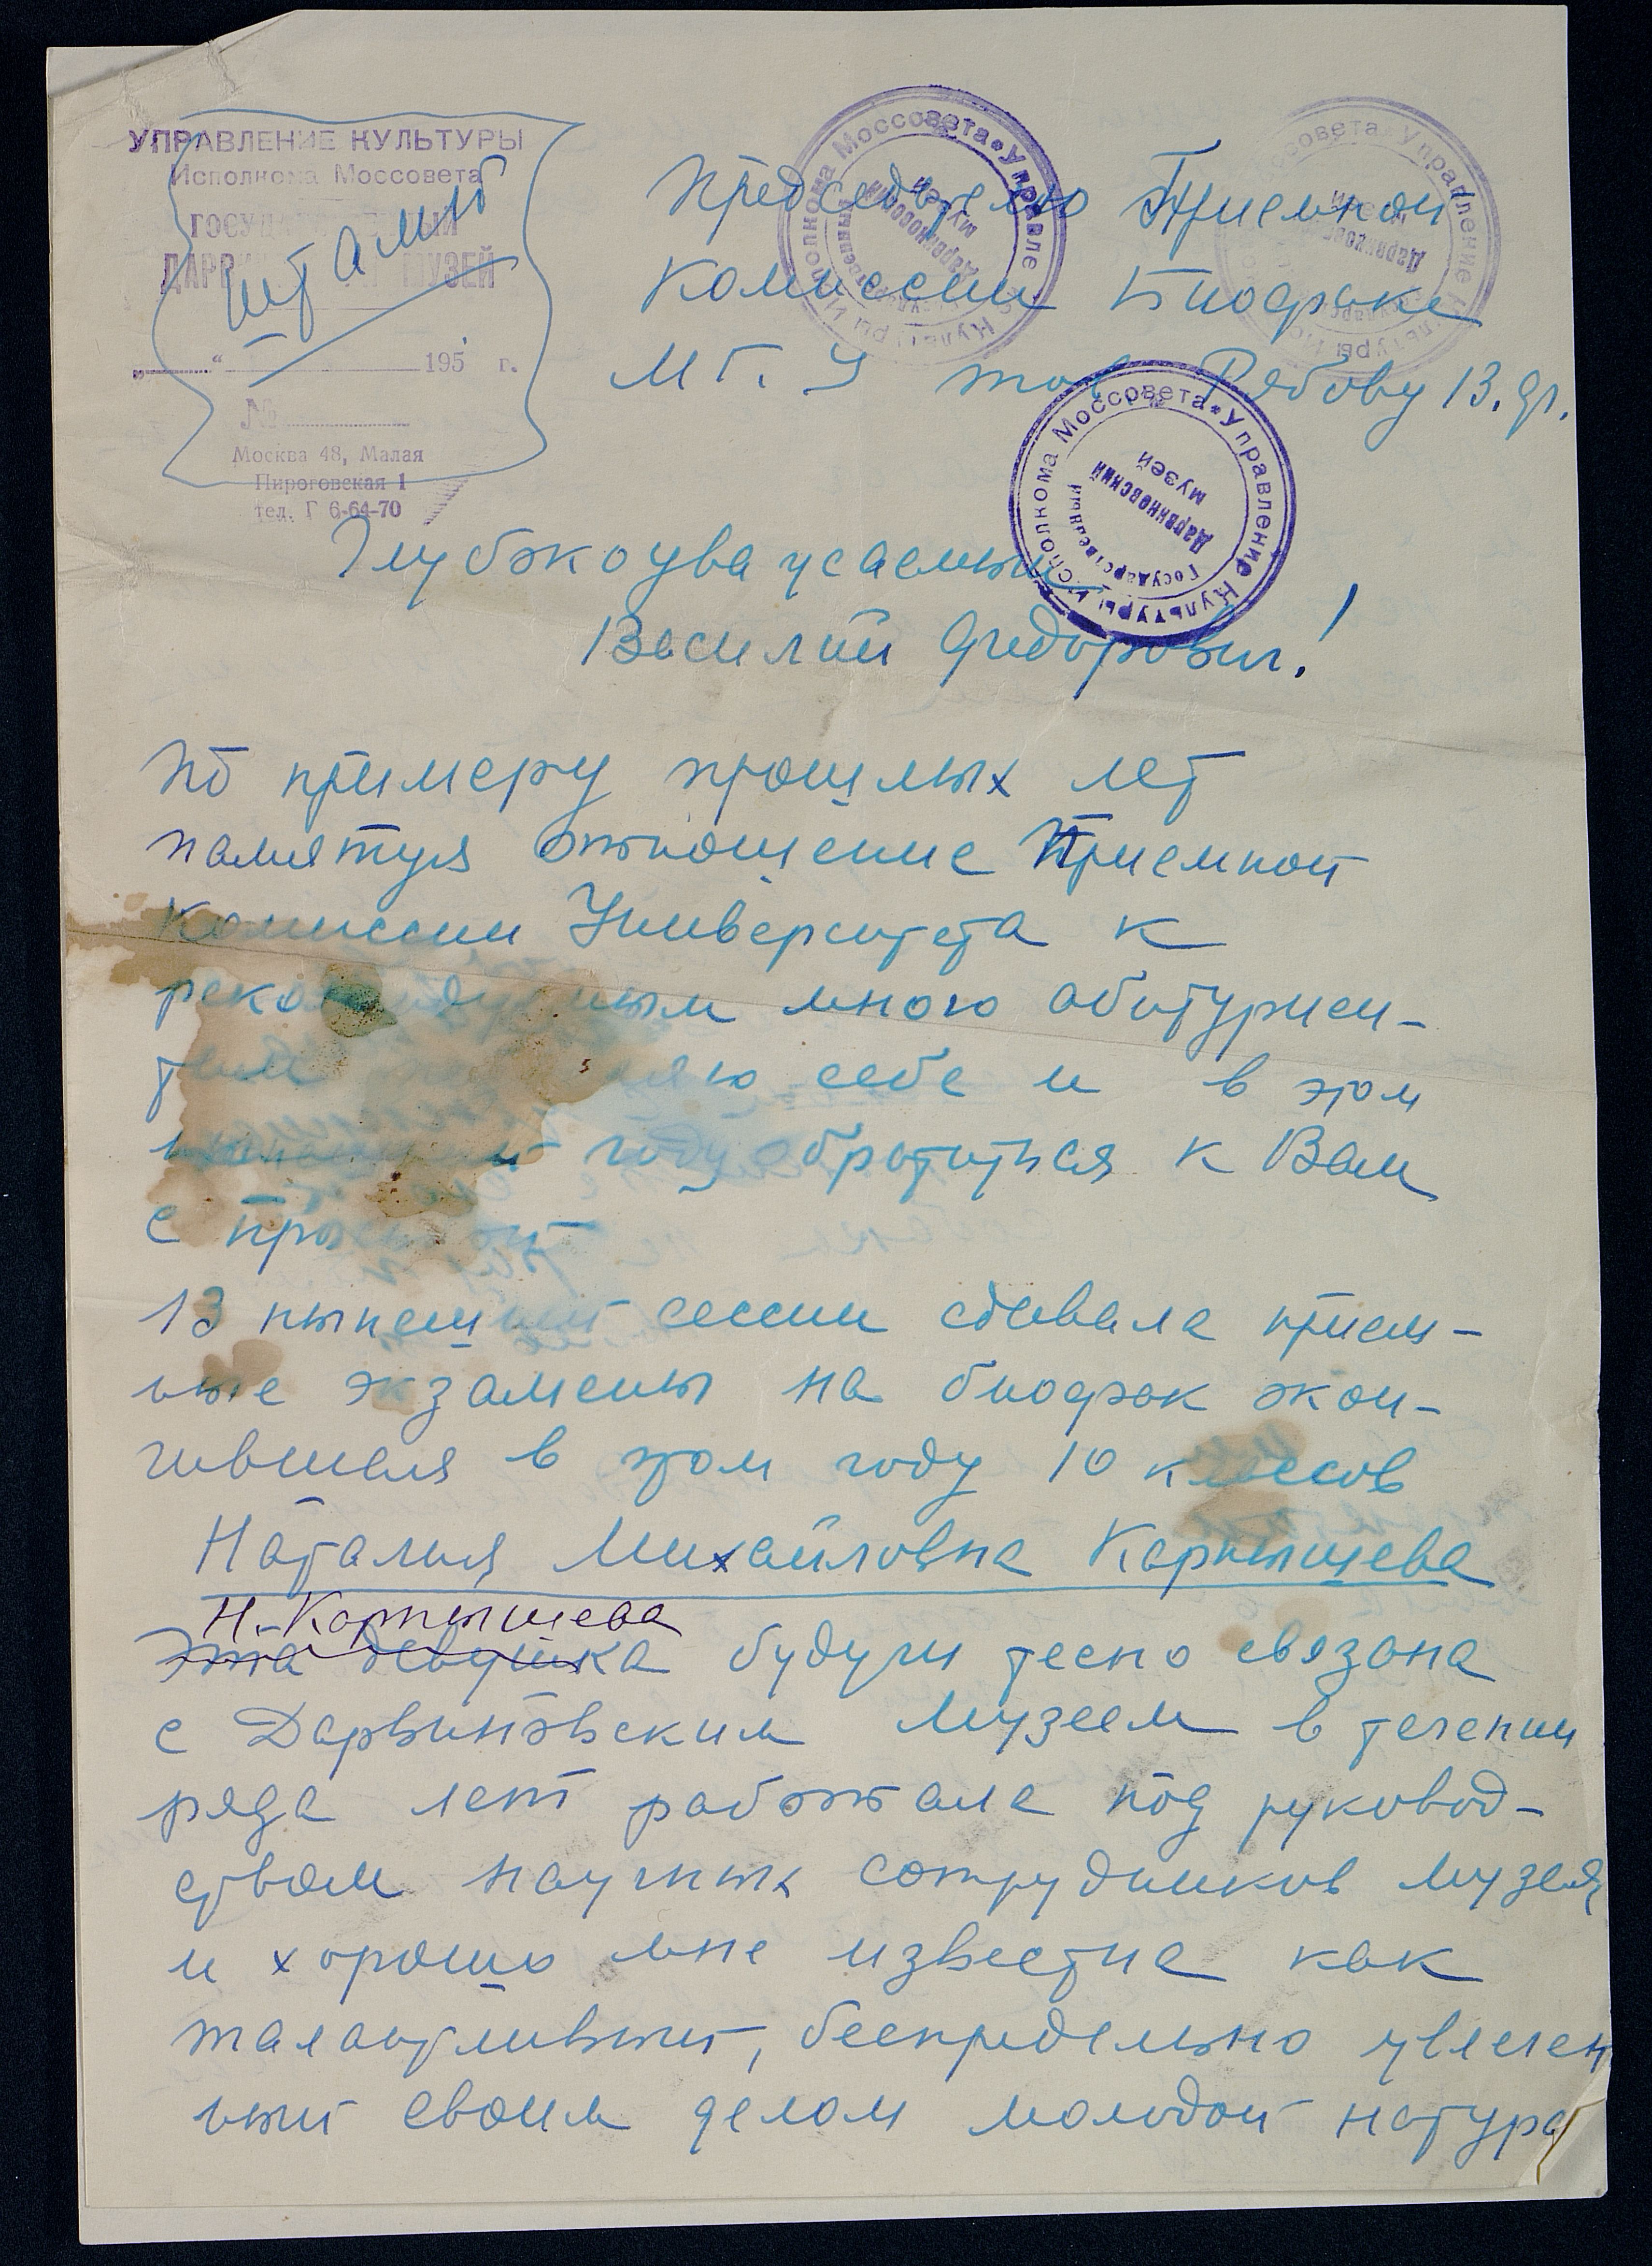 УПРАВЛЕНИЕ КУЛЬТУРЫ
Исполкома Моссовета
ГОСУДАРСТВЕННЫЙ
ДАРВИНОВСКИЙ МУЗЕЙ
штамп
„ “ 195 г.
№
Москва 48, Малая
Пироговская 1
тел. Г 6-64-70
Управление Культуры Исполкома Моссовета
Государственный
Дарвиновский
музей
Председателю Приемной
Комиссии Биофака
МГ.У тов Рябову В. Ф.
Глубокоуважаемый
Василий Федорович!
По примеру прошлых лет
памятуя отношение Приемной
Комиссии Университета к
рекомендуемым мною абитуриен-
там себе и в этом
году обратиться к Вам
с просьбой
В нынешней сессии сдавала прием-
ные экзамены на биофак окон-
чившая в этом году 10 классов
Наталия Михайловна Карпышева
Н. Карпышева
Эта девушка будучи тесно связана
с Дарвиновским Музеем в течении
ряда лет работала под руковод-
ством научных сотрудников музея,
и хорошо мне известна как
талантливый, беспредельно увлечен
ный своим делом молодой натура